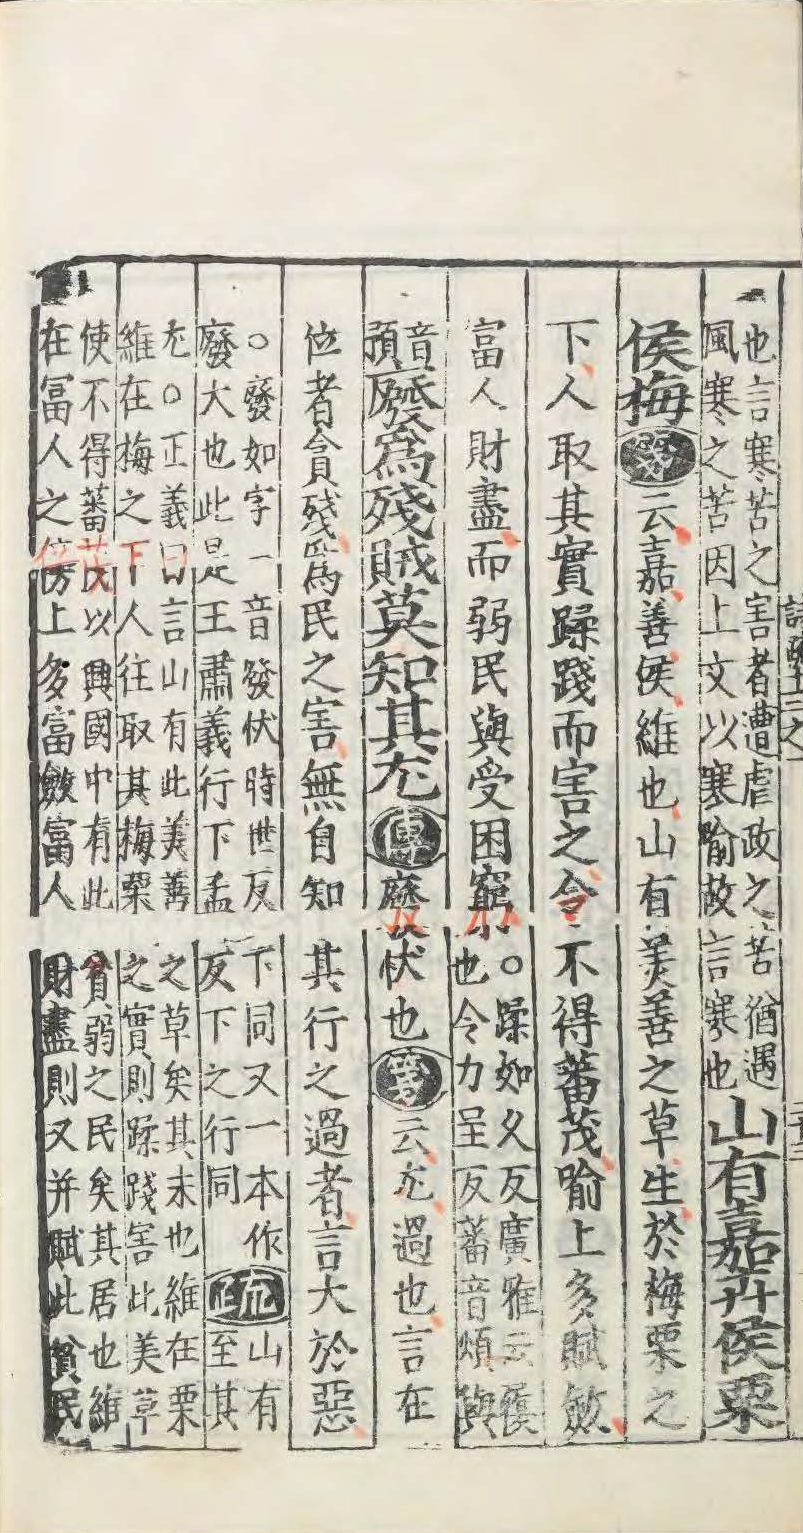 也言寒苦之害者遭虐政之苦猶遇
風寒之苦因上文以寒喻故言寒也
山有嘉卉侯栗
侯梅箋云嘉善侯維也山有美善之草生於梅栗之
下人取其實蹂踐而害之令不得蕃茂喻上多賦斂
富人財盡而弱民與受困窮
○蹂如久反廣雅云履
也令力呈反蕃音煩與
音
預
廢爲殘賊莫知其尤傳廢伏也箋云尤過也言在
位者貪殘爲民之害無自知其行之過者言大於惡
○廢如字一音發伏時世反下同又一本作
廢大也此是王肅義行下孟反下之行同
疏
山有
至其
尤○正義曰言山有此美善之草矣其末也維在栗
維在梅之下人往取其梅栗之實則蹂踐害此美草
使不得蕃茂以興國中有此貧弱之民矣其居也維
在冨人之傍上多富斂富人財盡則又并賦此貧民